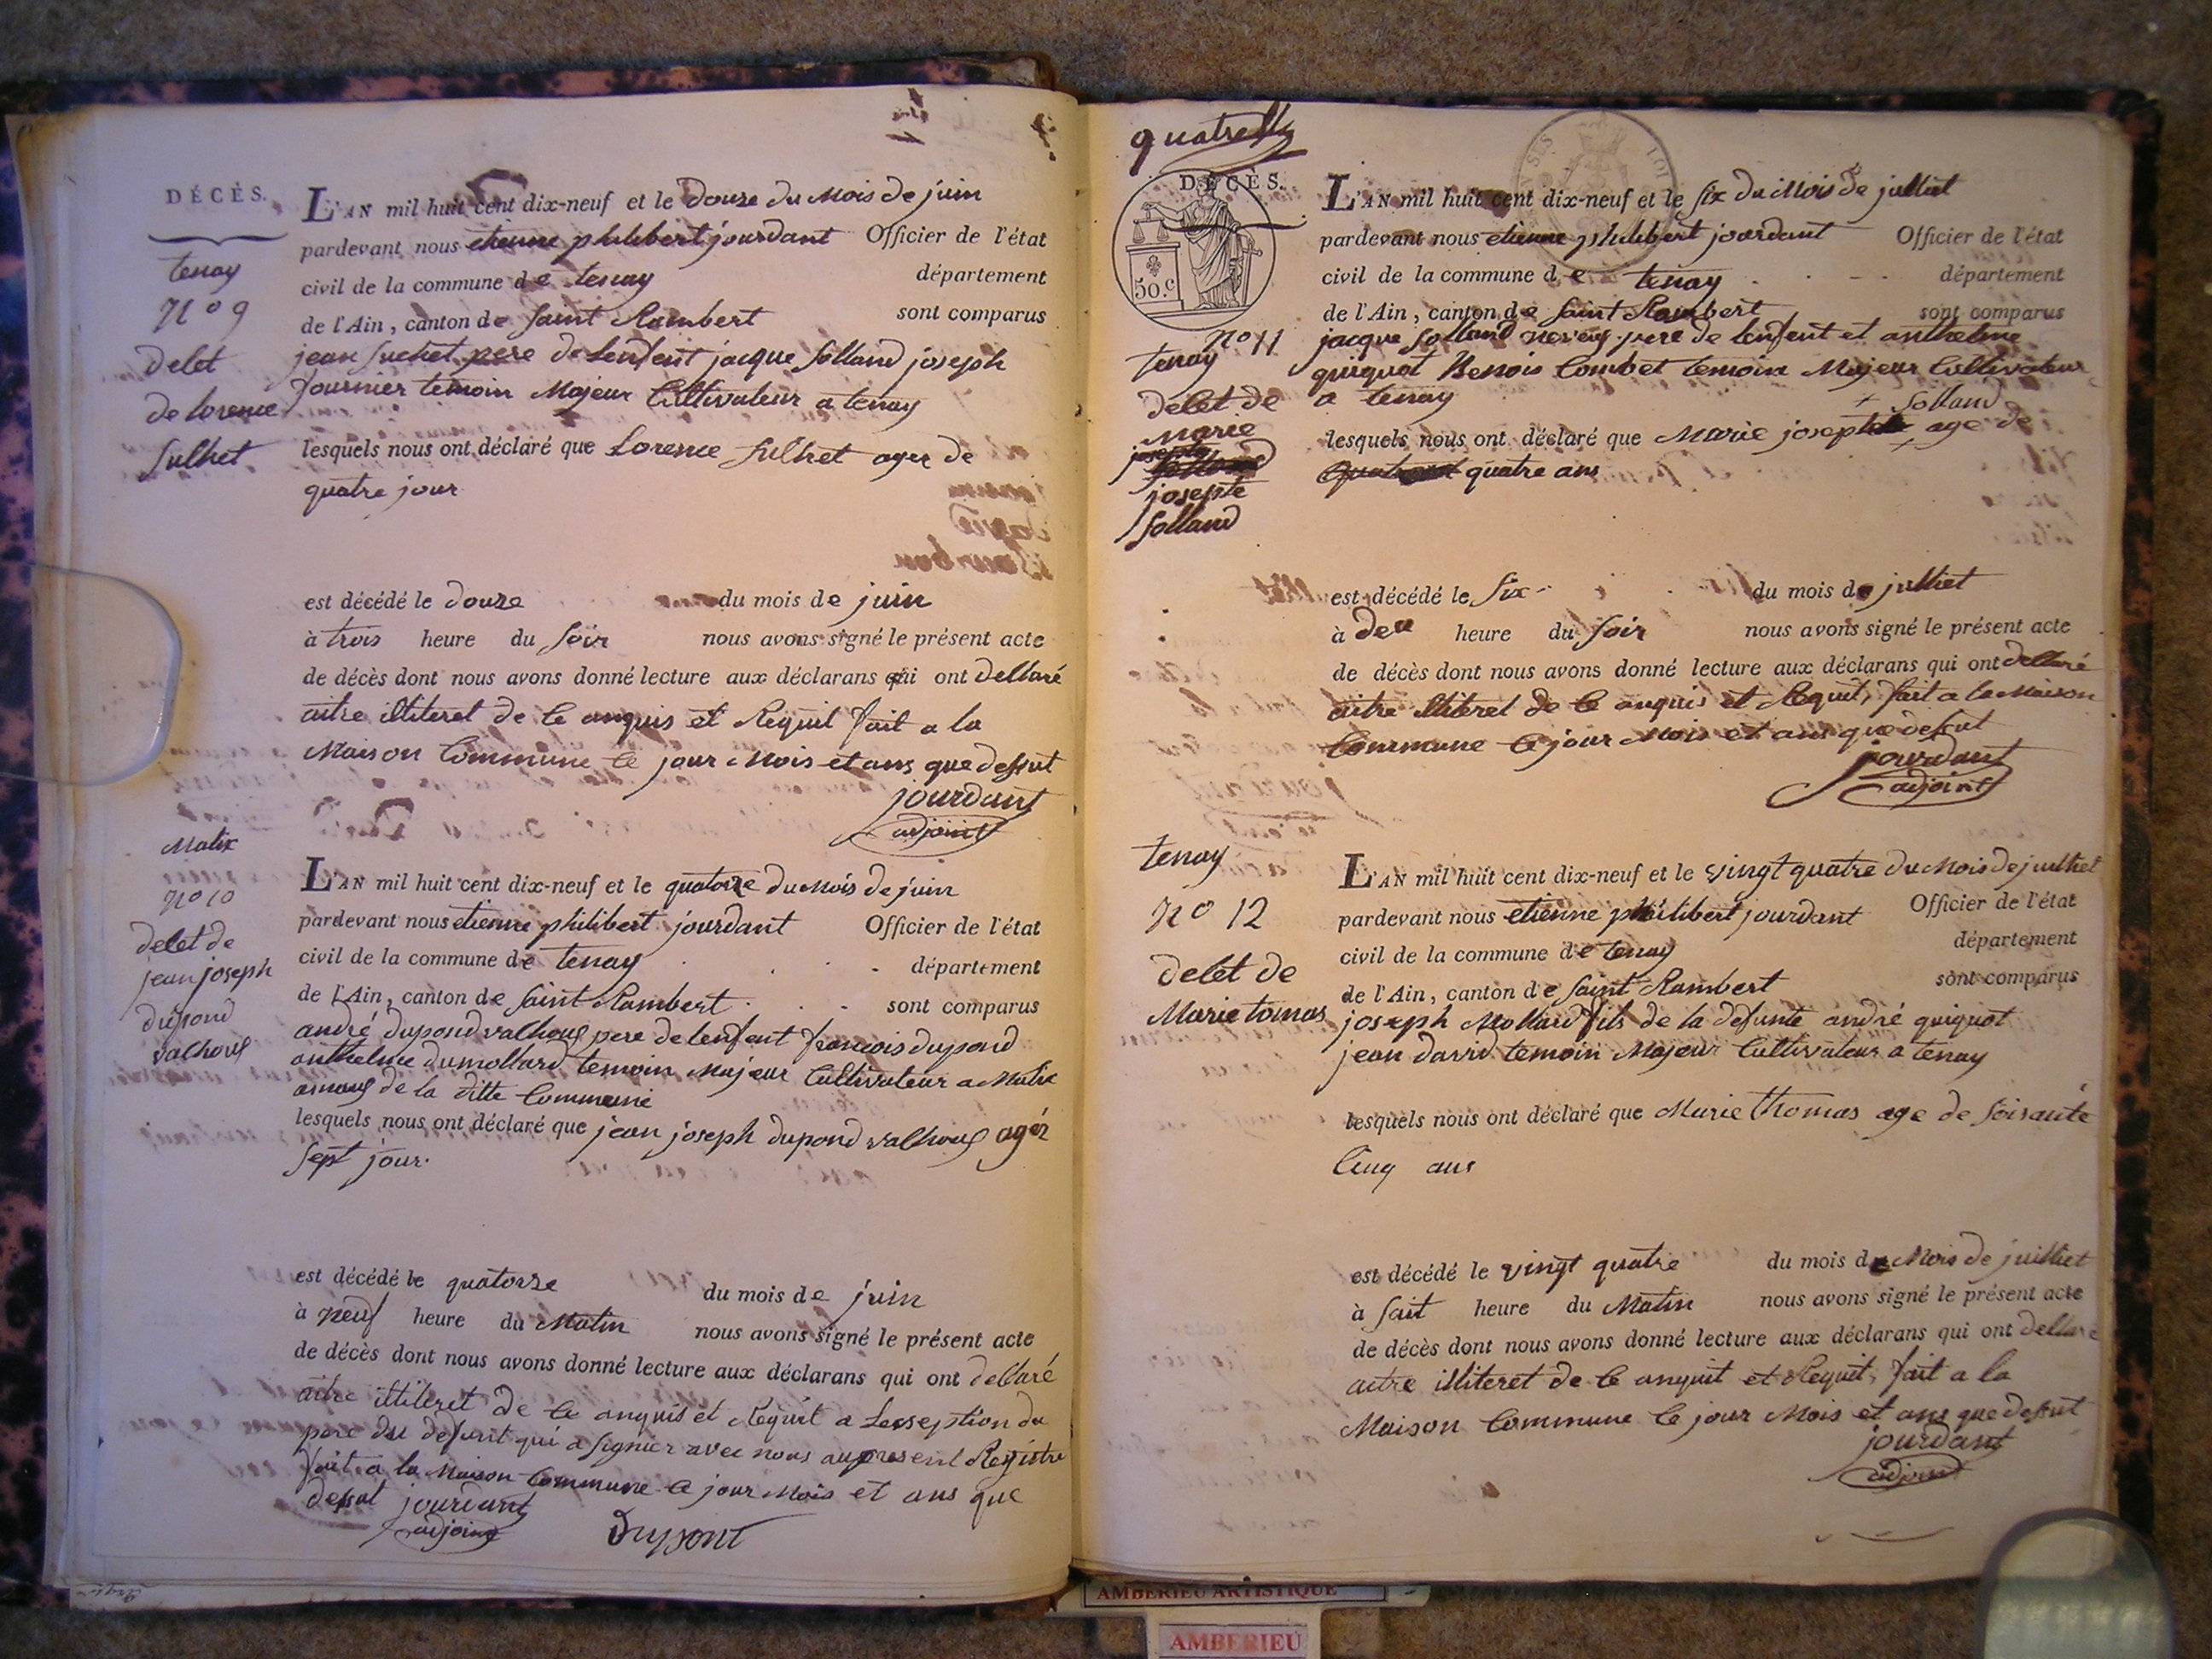 DÉCÈS.
tenay
n° 9
delet
de lorence
sulhet
L'AN mil huit cent dix-neuf et le douze du mois de juin
pardevant nous etienne philibert jourdant Officier de l'état
civil de la commune de tenay département
de l'Ain, canton de saint Rambert sont comparus
jean suchet pere de lenfent jacque solland joseph
fournier temoin Majeur Cultivateur a tenay
lesquels nous ont déclaré que Lorence sulhet ager de
quatre jour
est décédé le douze du mois de juin
à trois heure du soir nous avons signé le présent acte
de décès dont nous avons donné lecture aux déclarans qui ont dellaré
aitre illiteret de ce anquis et Requit fait a la
Maison Commune le jour Mois et ans que dessut
jourdant
adjoint
Malix
n° 10
delet de
jean joseph
dupond
valhous
L'AN mil huit cent dix-neuf et le quatorze du mois de juin
pardevant nous etienne philibert jourdant Officier de l'état
civil de la commune de tenay département
de l'Ain, canton de saint Rambert sont comparus
andré dupond valhous pere de lenfent francois dupond
anthelme dumollard temoin Majeur Cultivateur a Malix
amaus de la ditte Commune
lesquels nous ont déclaré que jean joseph dupond valhous agér
sept jour.
est décédé le quatorze du mois de juin
à neuf heure du Matin nous avons signé le présent acte
de décès dont nous avons donné lecture aux déclarans qui ont dellaré
aitre illiteret de ce anquis et Requit a Lexseption du
pere du defunt qui a signier avec nous au present Registre
fait a la Maison Commune le jour Mois et ans que
desut jourdant
adjoint
Dupont
quatre
DÉCÈS.
50.c
n° 11
tenay
delet de
Marie
josepte
josepte
solland
L'AN mil huit cent dix-neuf et le six du Mois de julliet
pardevant nous etienne philibert jourdant Officier de l'état
civil de la commune de tenay département
de l'Ain, canton de saint Rambert sont comparus
jacque solland pere de lenfent et anthelme
quiquot Benois Combet temoin Majeur Cultivateur
a tenay
+ solland
lesquels nous ont déclaré que Marie josephte + age de
quatre ans
est décédé le six du mois de julliet
à deu heure du soir nous avons signé le présent acte
de décès dont nous avons donné lecture aux déclarans qui ont dellaré
aitre illiteret de ce anquis et Requit, fait a la Maison
Commune le jour Mois et ans que desut
jourdant
adjoint
tenay
n° 12
delet de
Marie tomas
L'AN mil huit cent dix-neuf et le vingt quatre du Mois de juilhet
pardevant nous etienne philibert jourdant Officier de l'état
civil de la commune de tenay département
de l'Ain, canton de saint Rambert sont comparus
joseph Mollard fils de la defunte andré quiquot
jean david temoin Majeur Cultivateur a tenay
lesquels nous ont déclaré que Marie thomas age de soisante
Cinq ans
est décédé le vingt quatre du mois de Mois de juilliet
à sait heure du Matin nous avons signé le présent acte
de décès dont nous avons donné lecture aux déclarans qui ont dellaré
aitre illiteret de ce anquit et Requit, fait a la
Maison Commune le jour Mois et ans que desut
jourdant
adjoint
AMBERIEU ARTISTIQUE
AMBERIEU